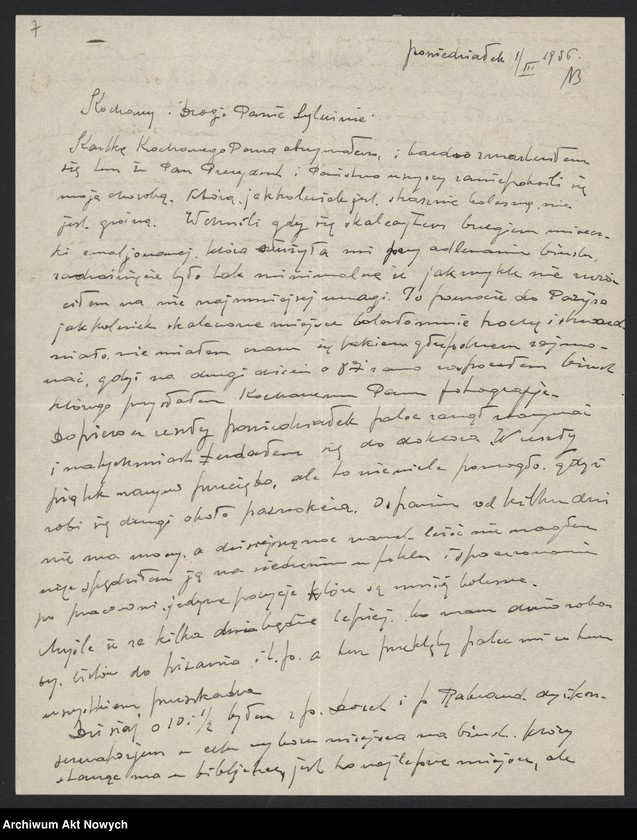 7
poniedziałek 1/III 1936.
NB
Kochany i Drogi Panie Sylwinie
Kartkę Kochanego Pana otrzymałem, i bardzo zmartwiłem
się tem że Pan Prezydent i Państwo wszyscy zaniepokoili się
moją chorobą, która, jakkolwiek jest strasznie bolesną, nie
jest groźną. W chwili gdy się skaleczyłem brzegiem misecz-
ki emaljowanej, która służyła mi przy odlewaniu biustu,
zadraśnięcie było tak minimalne że jak zwykle nie zwró-
ciłem na nie najmniejszej uwagi. Po powrocie do Paryża
jakkolwiek skaleczone miejsce bolało mnie trochę i
miało, nie miałem czasu się takiem głupstwem zajmo-
wać, gdyż na drugi dzień o 8 rano rozpocząłem biust
którego przysłałem Kochanemu Panu fotografję.
Dopiero w zeszły poniedziałek palec zaczął
i natychmiast udałem się do doktora. W zeszły
piątek znowu przecięto, ale to niewiele pomogło, gdyż
robi się drugi około paznokcia. od kilku dni
nie ma mowy, a dzisiejszą noc nawet leżeć nie mogłem
więc spędziłem ją na siedzeniu w fotelu i spacerowaniu
po pracowni, jedyne pozycje które są mniej bolesne.
Myślę że za kilka dni będzie lepiej, bo mam dużo robo-
ty, listów do pisania i t.p. a ten przeklęty palec mi w tem
wszystkiem przeszkadza
Dzisiaj o 10 i 1/2 byłem z p. i p.
w celu wyboru miejsca na biust, który
stanąć ma w bibljotece, jest to najlepsze miejsce, ale
Archiwum Akt Nowych